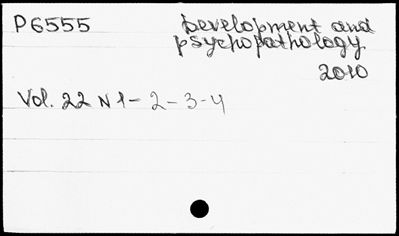 P6555
Development and
psychopathology
2010
Vol. 22 N 1 - 2 - 3 - 4